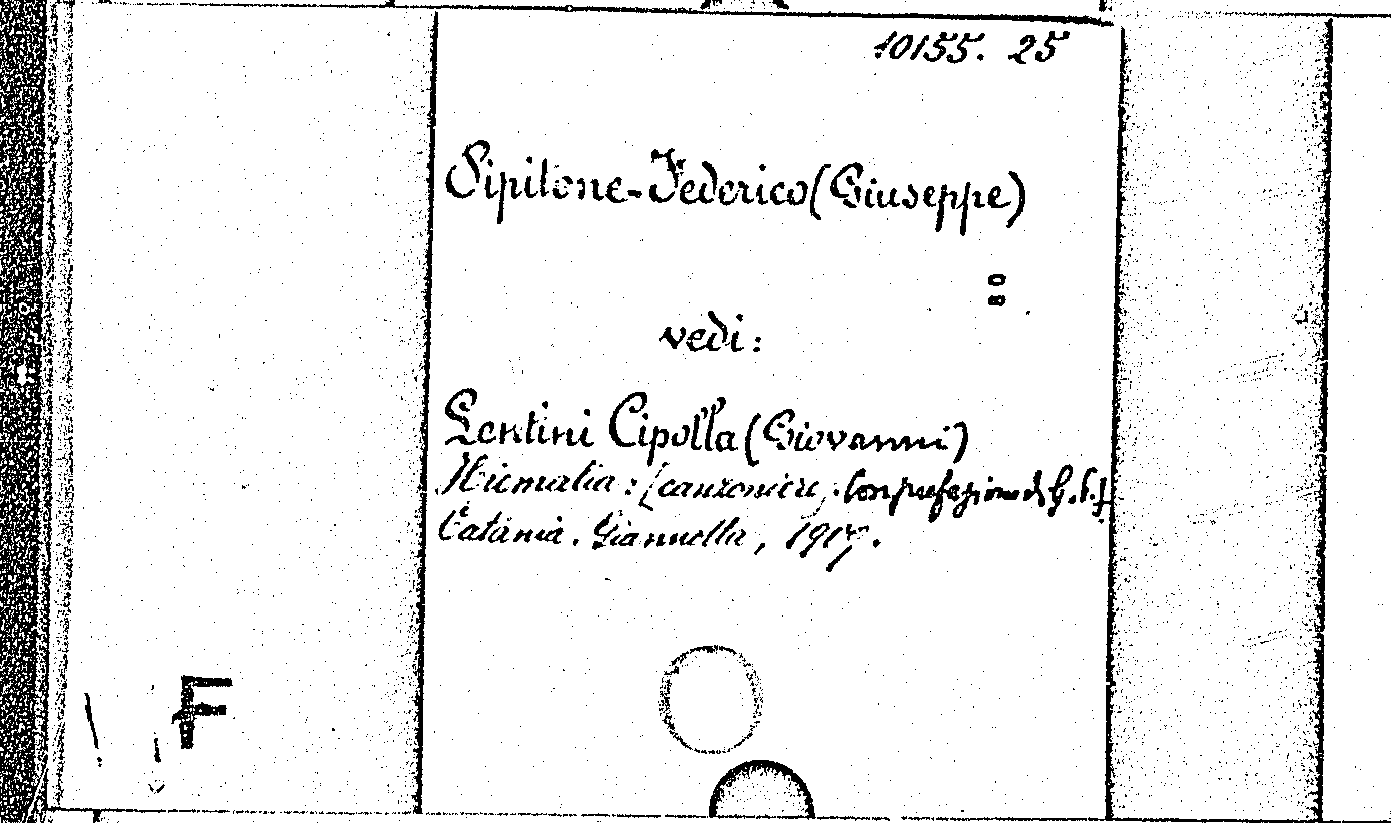 10155. 25
Pipitone-Federico (Giuseppe)
80
vedi:
Lentini Cipolla (Giovanni)
Hiemalia: (canzoniere). Con prefazione di G. P. F.
Catania. Giannotta, 1917.
F